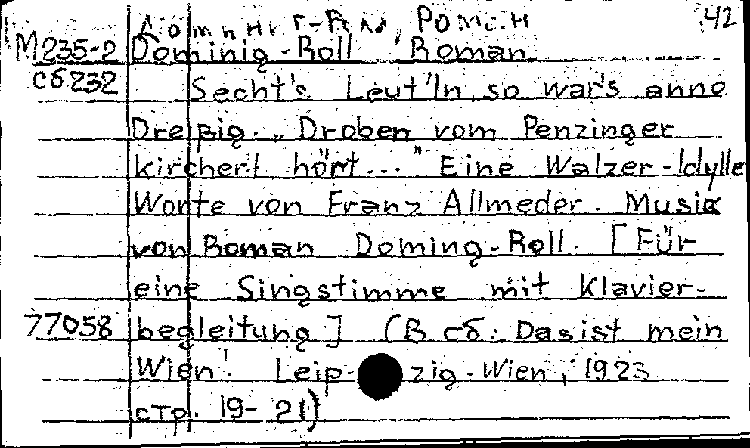 42
Доминиг-Ролл, Роман
М235-2 Dominig-Roll Roman
сб232 Secht's Leut'ln, so war's anno
Dreißig. „Droben vom Penzinger
kircherl hört..." Eine Walzer-Idylle
Worte von Franz Allmeder. Musik
von Roman Doming-Roll. [Für
eine Singstimme mit Klavier-
77058 begleitung] (В сб: Das ist mein
Wien! Leipzig-Wien, 1923
стр. 19-21)